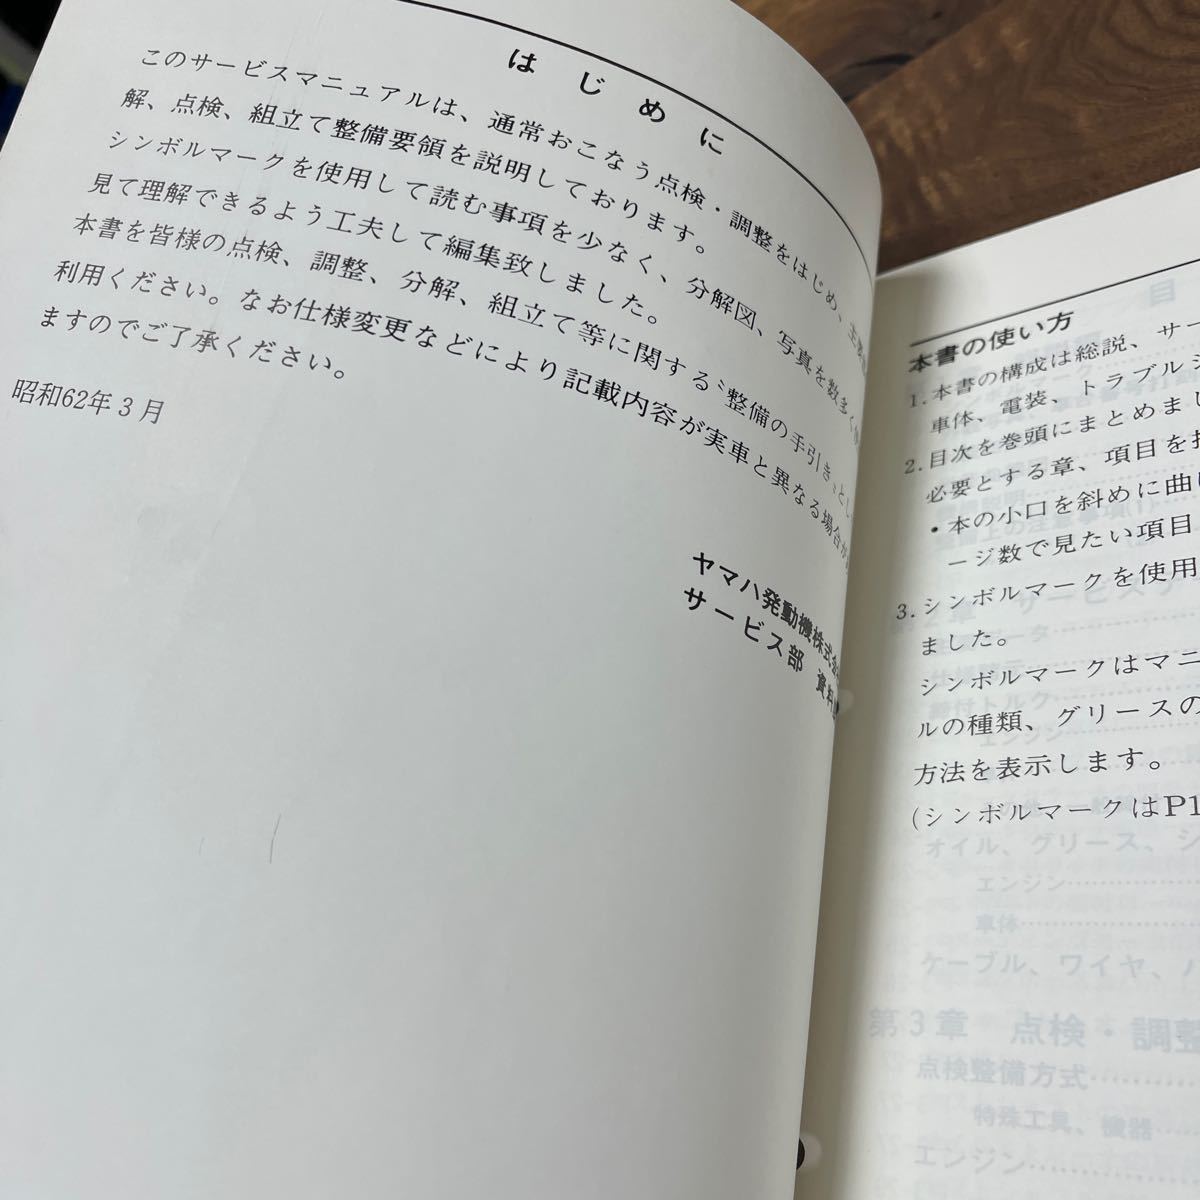 はじめに
このサービスマニュアルは、通常おこなう点検・調整をはじめ、主要
解、点検、組立て整備要領を説明しております。
シンボルマークを使用して読む事項を少なく、分解図、写真を数多く
見て理解できるよう工夫して編集致しました。
本書を皆様の点検、調整、分解、組立て等に関する〝整備の手引き〟とし
利用ください。なお仕様変更などにより記載内容が実車と異なる場合が
ますのでご了承ください。
昭和62年3月
ヤマハ発動機株式会
サービス部 資料
目
本書の使い方
1. 本書の構成は総説、サー
車体、電装、トラブルシ
2. 目次を巻頭にまとめまし
必要とする章、項目を
・本の小口を斜めに曲げ
ージ数で見たい項目
3. シンボルマークを使用
ました。
シンボルマークはマニ
ルの種類、グリースの
方法を表示します。
(シンボルマークはP1
オイル、グリース、シ
エンジン
車体
ケーブル、ワイヤ、ハ
第3章 点検・調整
点検整備方式
特殊工具、機器
エンジン